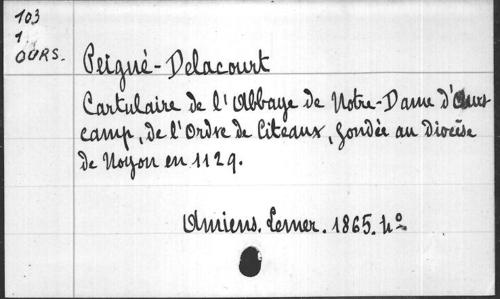 103
1
OURS.
Peigné-Delacourt
Cartulaire de l'Abbaye de Notre-Dame d'Ours
camp, de l'Ordre de Citeaux, fondée au Diocèse
de Noyon en 1129.
Amiens. Lemer. 1865. 4º